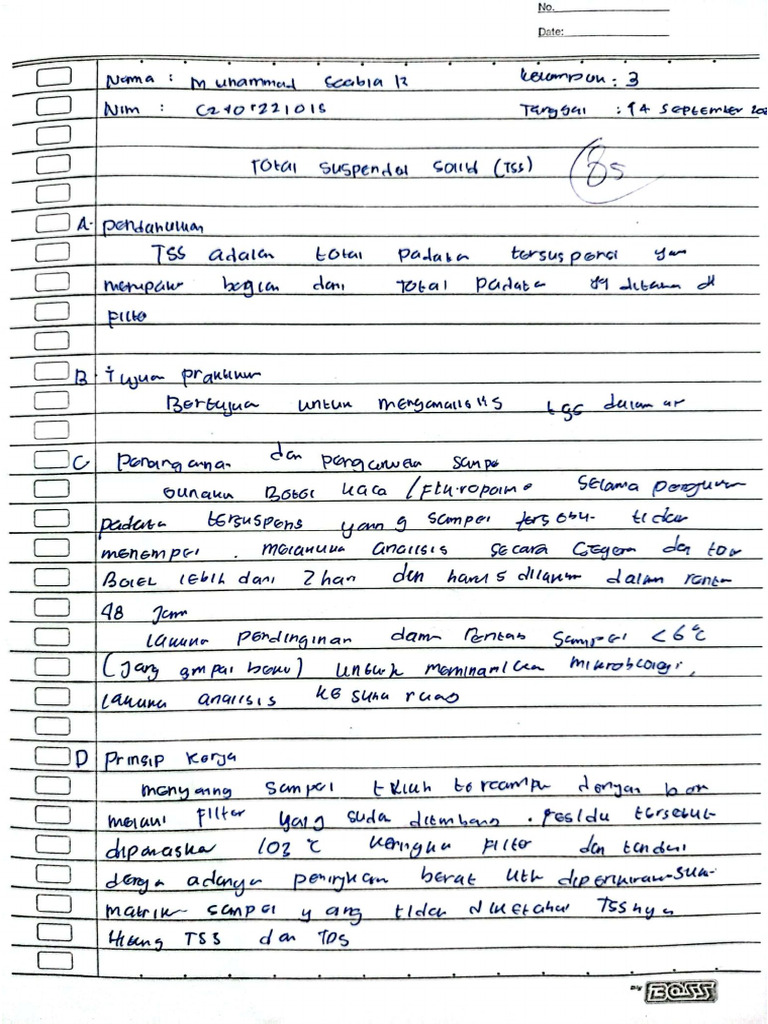 No.
Date:
Nama : Muhammad Kelompok : 3
Nim : Tanggal : 14 September
Total Suspended Solid (TSS)
85
A. Pendahuluan
TSS adalah total padatan tersuspensi yan
merupakan bagian dari total padatan yg ditahan di
filter
B. Tujuan praktikum
Bertujuan untuk menganalisis tss dalam air
C Penanganan dan pengawetan sampel
Gunakan Botol kaca / selama
padatan tersuspensi yang sampel tersebut tidak
menempel. melakukan analisis secara segera dan
Botol lebih dari 2 hari dan harus dilakukan dalam rentan
48 Jam
lakukan pendinginan dalam rentan sampel < 6°c
(jang ampai beku) untuk mikrobiologi,
lakukan analisis ke suhu ruang
D Prinsip Kerja
menyaring sampel telah tercampur dengan
melalui filter yang suda ditimbang. residu tersebut
dipanaskan 103 °c keringkan filter dan
dengan adanya berat utk diperkirakan
matrik sampel yang tidak diketahui TSSnya
Hitung TSS dan TDS
BOSS